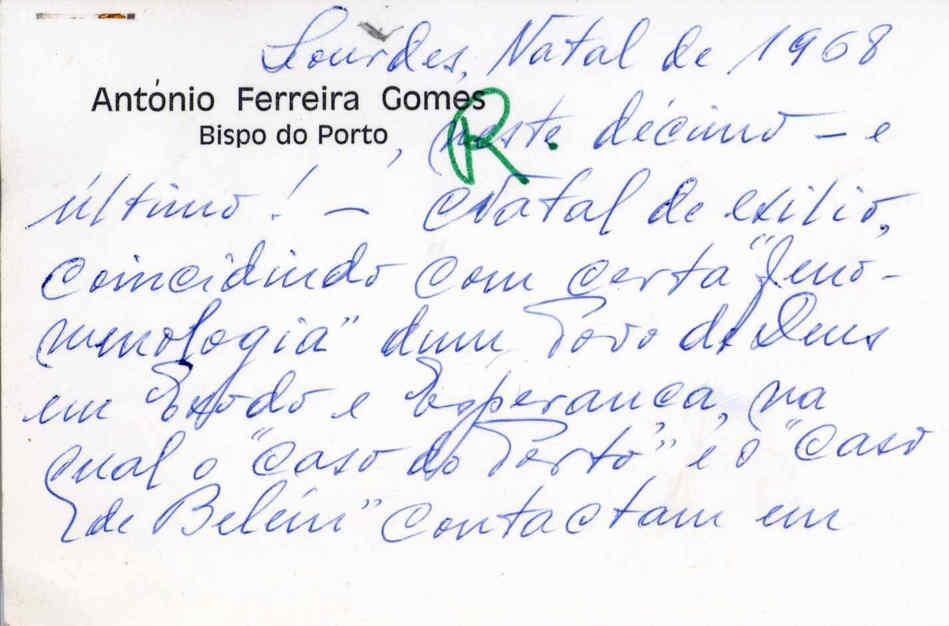 Lourdes, Natal de 1968
António Ferreira Gomes
Bispo do Porto
R.
, neste décimo – e
último! – Natal de exílio,
coincidindo com certa "feno-
menologia" dum Povo de Deus
em Êxodo e Esperança, na
qual o "caso do Porto" e o "caso
de Belém" contactam em